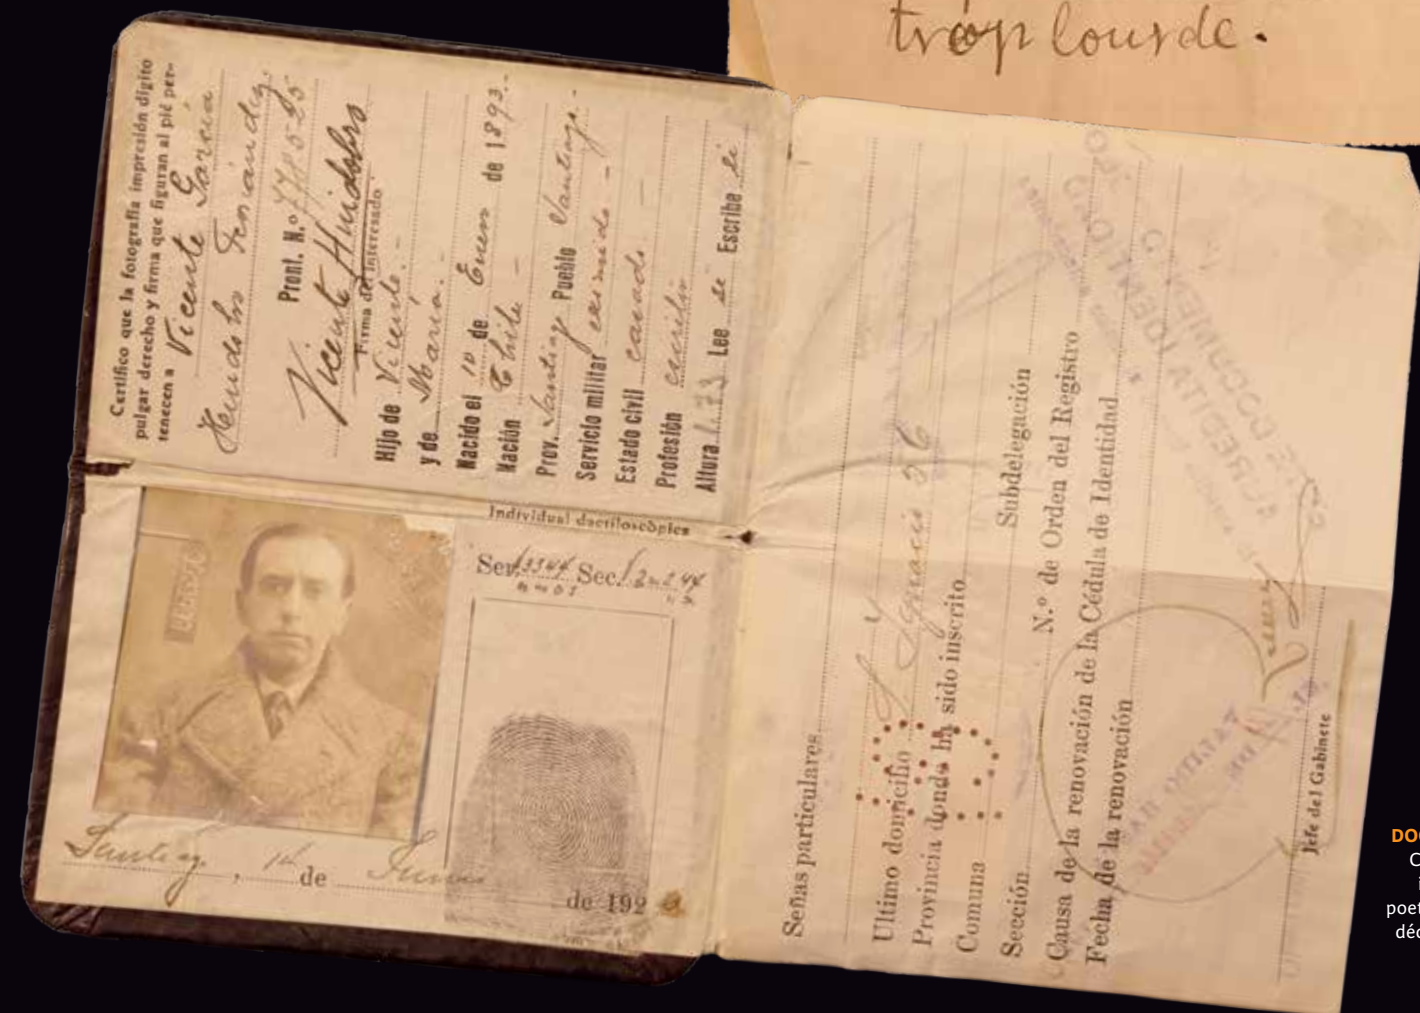 trop lourde.
Certifico que la fotografía impresión dígito
pulgar derecho y firma que figuran al pié per-
tenecen a Vicente García
Huidobro Fernández
Pront. N.º 778525
Vicente Huidobro
Firma del Interesado
Hijo de Vicente.-
y de María.-
Nacido el 10 de Enero de 1893.-
Nación Chile -
Prov. Santiago Pueblo Santiago.-
Servicio militar eximido -
Estado civil casado. -
Profesión escritor
Altura 1.73 Lee si Escribe si
Individual dactiloscòpica
Ser. 3344 Sec.
Santiago, 14 de
de 192
Señas particulares
Ultimo domicilio S. Ignacio 56
Provincia donde ha sido inscrito
Comuna Subdelegación
Sección N.º de Orden del Registro
Causa de la renovación de la Cédula de Identidad
Fecha de la renovación
Jefe del Gabinete